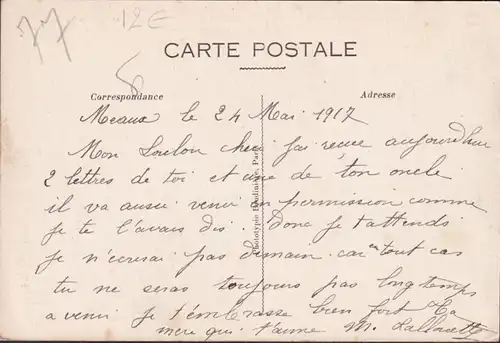 77
12€
CARTE POSTALE
Correspondance
Adresse
Meaux le 24 Mai 1917
Mon Loulou cheri j'ai reçue aujourd'hui
2 lettres de toi et une de ton oncle
il va aussi venir en permission comme
je te l'avais dis. Donc je t'attends
je n'écrirai pas demain car en tout cas
tu ne seras toujours pas longtemps
a venir je t'embrasse bien fort Ta
mere qui t'aime M.
Phototypie Baudinière, Paris